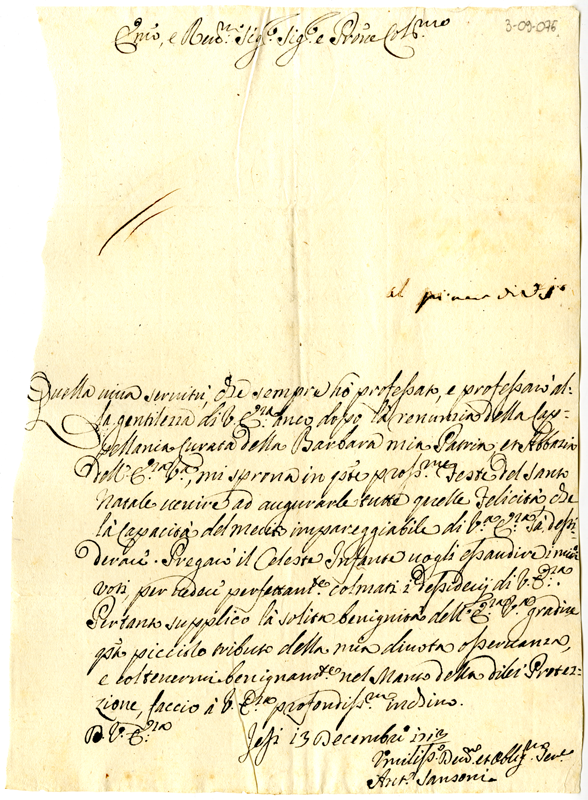 3-09-076
Emo, e Revmo Sigre Sigre e Prone Colmo
al
Quella viva servitù, che sempre hò professato, e professarò al-
la gentilezza di V. Emza anco dopo la renunzia della Cap-
pellania Curata della Barbara mia Patria, et Abbazia
dell'Emza Va, mi sprona in qste prossme Feste del Santo
Natale venire ad augurarle tutte quelle Felicità che
la Capacità del merito impareggiabile di Va Emza sà desi-
derare. Pregarò il Celeste Infante vogli essaudire i miei
voti, per vederli perfettamte colmati i desiderij di V. Emza
Pertanto supplico la solita benignità dell'Emza Va gradire
qsto picciolo tributo della mia divota osservanza,
e coltenermi benignamte nel Manto della di lei Protez-
zione, faccio à V. Emza profondissmo inchino.
D. V. Emza
Jesi 13 Decembre
Umiliss. Devmo et Obligmo Serre
Anto Sansoni